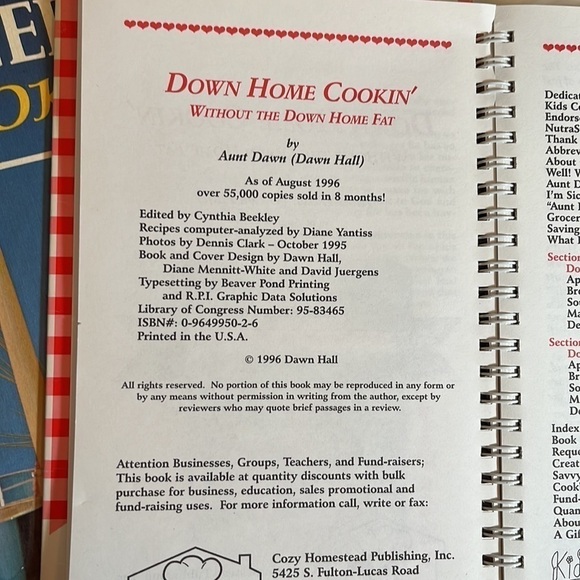 DOWN HOME COOKIN'
WITHOUT THE DOWN HOME FAT
by
Aunt Dawn (Dawn Hall)
As of August 1996
over 55,000 copies sold in 8 months!
Edited by Cynthia Beekley
Recipes computer-analyzed by Diane Yantiss
Photos by Dennis Clark – October 1995
Book and Cover Design by Dawn Hall,
Diane Mennitt-White and David Juergens
Typesetting by Beaver Pond Printing
and R.P.I. Graphic Data Solutions
Library of Congress Number: 95-83465
ISBN#: 0-9649950-2-6
Printed in the U.S.A.
© 1996 Dawn Hall
All rights reserved. No portion of this book may be reproduced in any form or
by any means without permission in writing from the author, except by
reviewers who may quote brief passages in a review.
Attention Businesses, Groups, Teachers, and Fund-raisers;
This book is available at quantity discounts with bulk
purchase for business, education, sales promotional and
fund-raising uses. For more information call, write or fax:
Cozy Homestead Publishing, Inc.
5425 S. Fulton-Lucas Road
Kids
Thank
About
Well!
Aunt
I'm
"Aunt
What
Index
Book